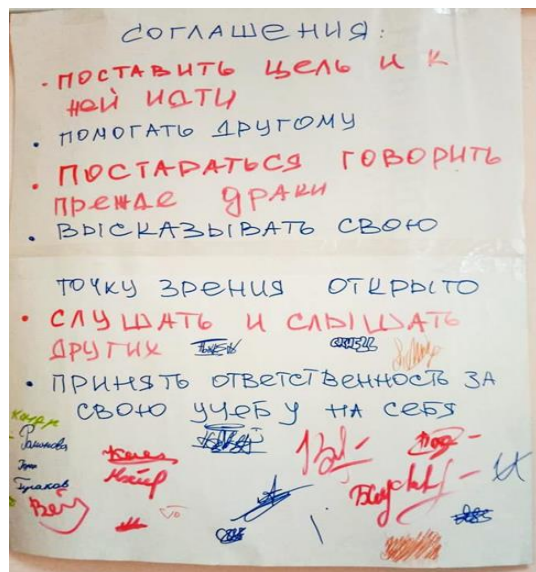 СОГЛАШЕНИЯ:
• ПОСТАВИТЬ ЦЕЛЬ И К
НЕЙ ИДТИ
• ПОМОГАТЬ ДРУГОМУ
• ПОСТАРАТЬСЯ ГОВОРИТЬ
ПРЕЖДЕ ДРАКИ
• ВЫСКАЗЫВАТЬ СВОЮ
ТОЧКУ ЗРЕНИЯ ОТКРЫТО
• СЛУШАТЬ И СЛЫШАТЬ
ДРУГИХ
• ПРИНЯТЬ ОТВЕТСТВЕННОСТЬ ЗА
СВОЮ УЧЕБУ НА СЕБЯ